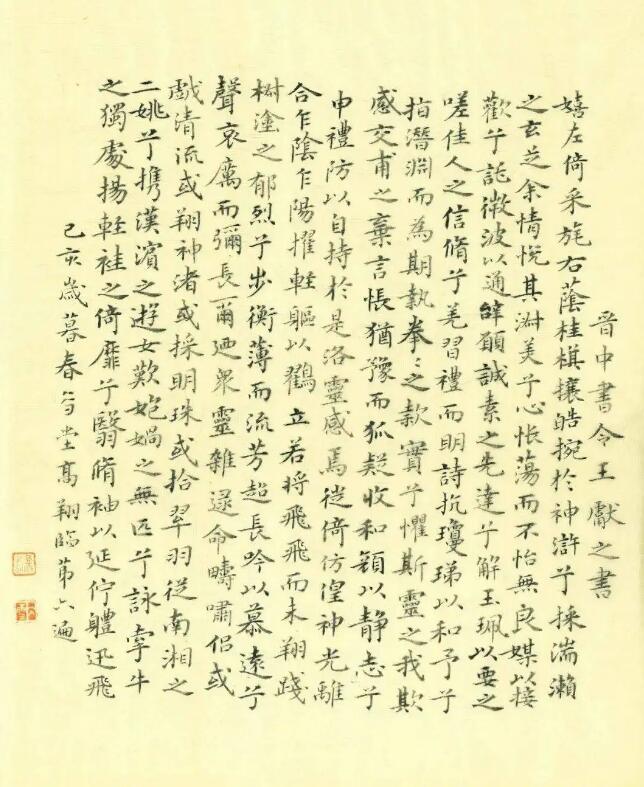 晋中書令王獻之書
嬉左倚采旄右蔭桂棋攘皓捥於神滸兮採湍瀨
之玄芝余情悅其淑美兮心悵蕩而不怡無良媒以接
歡兮託微波以通辭願誠素之先達兮解玉珮以要之
嗟佳人之信脩兮羌習禮而明詩抗瓊珶以和予兮
指潛淵而為期執拳〻之款實兮懼斯靈之我欺
感交甫之棄言悵猶豫而狐疑收和顏以静志兮
申禮防以自持於是洛靈感焉徙倚仿偟神光離
合乍陰乍陽擢軽軀以鸖立若将飛飛而未翔踐
椒塗之郁烈兮步衡薄而流芳超長吟以慕遠兮
聲哀厲而彌長爾迺衆靈雜遝命疇嘯侣或
戯清流或翔神渚或採明珠或拾翠羽從南湘之
二姚兮携漢濱之遊女歎匏媧之無匹兮詠牽牛
之獨處揚軽袿之倚靡兮翳脩袖以延佇軆迅飛
己亥歲暮春堂髙翔臨苐六遍